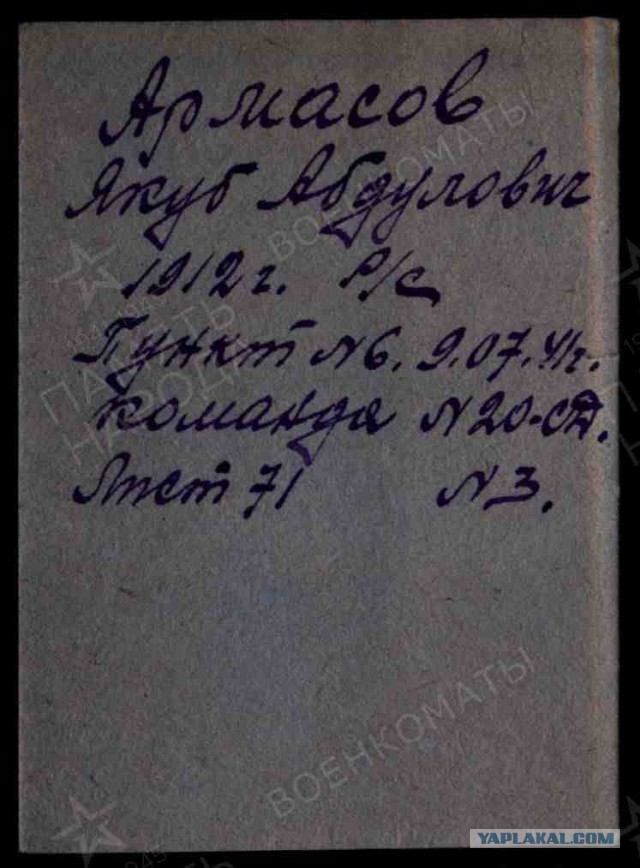 Армасов
Якуб Абдулович
1912 г. Р/с
Пункт №6. 9.07.41г.
команда №20-СД.
Лист 71 №3.
ВОЕНКОМАТЫ
ПАМЯТЬ
НАРОДА
ВОЕНКОМАТЫ
YAPLAKAL.COM